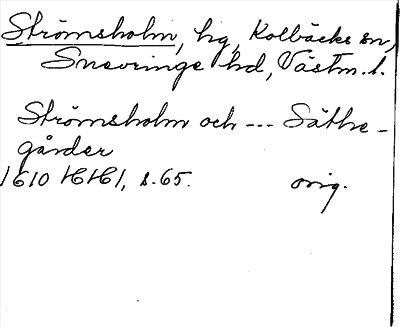 Strömsholm, hg, Kolbäcks sn,
Snevringe hd, Västm. l.
Strömsholm och --- Säthe-
gårder
1610 HHl, s. 65. orig.